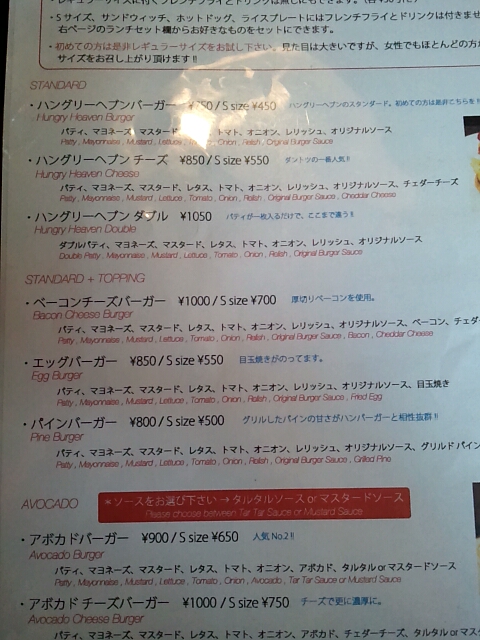 ・レギュラーサイズに付くフレンチフライとドリンクは
・Sサイズ、サンドウィッチ、ホットドッグ、ライスプレートにはフレンチフライとドリンクは付きませ
右ページのランチセット欄からお好きなものをセットにできます。
・初めての方は是非レギュラーサイズをお試し下さい。見た目は大きいですが、女性でもほとんどの方が
サイズをお召し上がり頂けます!!
STANDARD
・ハングリーヘブンバーガー ¥750 / S size ¥450 ハングリーヘブンのスタンダード。初めての方は是非こちらを!!
Hungry Heaven Burger
パティ、マヨネーズ、マスタード、レタス、トマト、オニオン、レリッシュ、オリジナルソース
Patty , Mayonnaise , Mustard , Lettuce , Tomato , Onion , Relish , Original Burger Sauce
・ハングリーヘブン チーズ ¥850 / S size ¥550 ダントツの一番人気!!
Hungry Heaven Cheese
パティ、マヨネーズ、マスタード、レタス、トマト、オニオン、レリッシュ、オリジナルソース、チェダーチーズ
Patty , Mayonnaise , Mustard , Lettuce , Tomato , Onion , Relish , Original Burger Sauce , Cheddar Cheese
・ハングリーヘブン ダブル ¥1050 パティが一枚入るだけで、ここまで違う!!
Hungry Heaven Double
ダブルパティ、マヨネーズ、マスタード、レタス、トマト、オニオン、レリッシュ、オリジナルソース
Double Patty , Mayonnaise , Mustard , Lettuce , Tomato , Onion , Relish , Original Burger Sauce
STANDARD + TOPPING
・ベーコンチーズバーガー ¥1000 / S size ¥700 厚切りベーコンを使用。
Bacon Cheese Burger
パティ、マヨネーズ、マスタード、レタス、トマト、オニオン、レリッシュ、オリジナルソース、ベーコン、チェダー
Patty , Mayonnaise , Mustard , Lettuce , Tomato , Onion , Relish , Original Burger Sauce , Bacon , Cheddar Cheese
・エッグバーガー ¥850 / S size ¥550 目玉焼きがのってます。
Egg Burger
パティ、マヨネーズ、マスタード、レタス、トマト、オニオン、レリッシュ、オリジナルソース、目玉焼き
Patty , Mayonnaise , Mustard , Lettuce , Tomato , Onion , Relish , Original Burger Sauce , Fried Egg
・パインバーガー ¥800 / S size ¥500 グリルしたパインの甘さがハンバーガーと相性抜群!!
Pine Burger
パティ、マヨネーズ、マスタード、レタス、トマト、オニオン、レリッシュ、オリジナルソース、グリルド パイン
Patty , Mayonnaise , Mustard , Lettuce , Tomato , Onion , Relish , Original Burger Sauce , Grilled Pine
AVOCADO ＊ソースをお選び下さい→タルタルソース or マスタードソース
Please choose between Tar Tar Sauce or Mustard Sauce
・アボカドバーガー ¥900 / S size ¥650 人気 No.2!!
Avocado Burger
パティ、マヨネーズ、マスタード、レタス、トマト、オニオン、アボカド、タルタル or マスタードソース
Patty , Mayonnaise , Mustard , Lettuce , Tomato , Onion , Avocado , Tar Tar Sauce or Mustard Sauce
・アボカド チーズバーガー ¥1000 / S size ¥750 チーズで更に濃厚に。
Avocado Cheese Burger
パティ、マヨネーズ、マスタード、レタス、トマト、オニオン、アボカド、チェダーチーズ、タルタル or マス